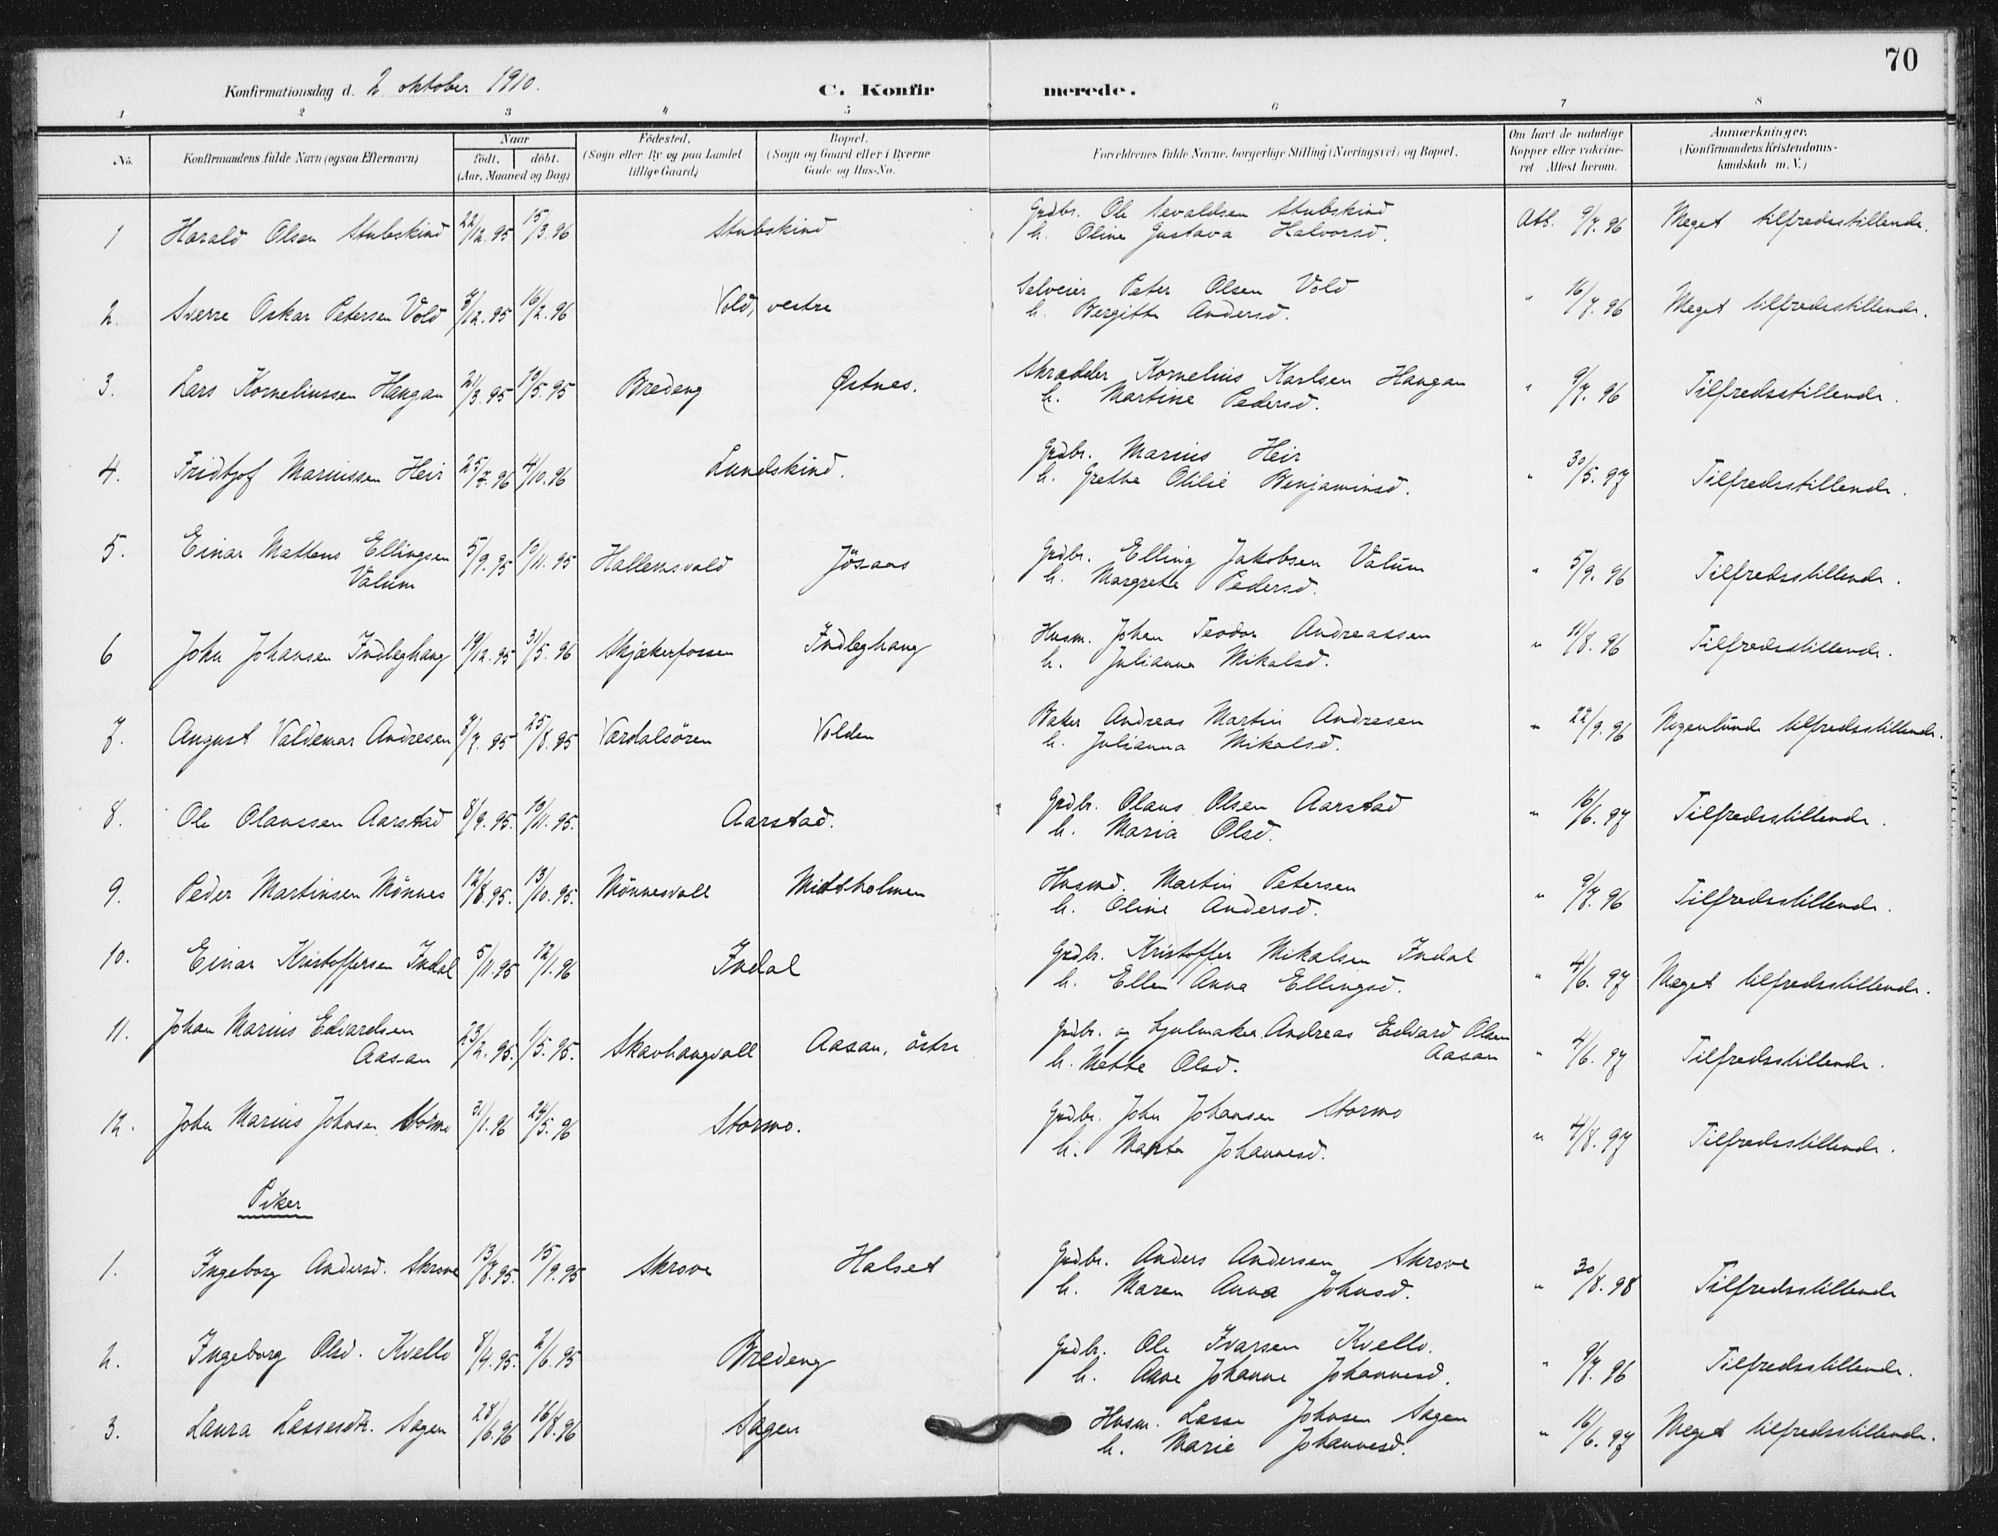 70
Konfirmationsdag d. 2 oktober 1910.
C. Konfirmerede.
1 2 3 4 5 6 7 8
No.
Konfirmandens fulde Navn (ogsaa Efternavn)
Naar
födt. döbt.
(Aar, Maaned og Dag)
Födested.
(Sogn eller By og paa Landet
tillige Gaard)
Bopæl.
(Sogn og Gaard eller i Byerne
Gade og Hus-No.
Forældrenes fulde Navne, borgerlige Stilling (Næringsvei) og Bopæl.
Om havt de naturlige
Kopper eller vakcine-
ret Attest herom.
Anmærkninger.
(Konfirmandens Kristendoms-
kundskab m. V.)
1 Harald Olsen Stubskind 22/12.95 15/3.96 Stubskind Grdbr. Ole Sevaldsen Stubskind Att. 9/7.96 Meget tilfredsstillende.
h. Oline Gustava Halvorsd.
2. Sverre Oskar Petersen Vold 7/12.95 16/2.96 Vold, vestre Selveier Peter Olsen Vold " 16/7.96 Meget tilfredsstillende.
h. Bergitte Andersd.
3. Lars Korneliussen Haugan 21/3.95 19/5.95 Bredeng Østnes. Skrædder Kornelius Karlsen Haugan " 9/7.96 Tilfredsstillende.
h. Martine Pedersd.
4. Fridtjof Mariussen Heir 25/7.96 4/10.96 Lundskind. Grdbr. Marius Heir " 30/5.97 Tilfredsstillende.
h. Grethe Otilie Benjaminsd.
5. Einar Mattens Ellingsen 5/9.95 10/11.95 Hallemsvald Jösaas Grdbr. Elling Jakobsen Valum " 5/9.96 Tilfredsstillende.
Valum h. Margrete Pedersd.
6 John Johansen Indleghaug 19/12.95 31/5.96 Skjækerfossen Indleghaug Husm. Johan Teodor Andreassen " 11/8.96 Tilfredsstillende.
h. Julianna Mikalsd.
7. August Valdemar Andresen 7/7.95 25/8.95 Værdalsören Volden Baker Andreas Martin Andresen " 22/9.96 Nogenlunde tilfredsstillende.
h. Julianna Mikalsd.
8. Ole Olaussen Aarstad 8/9.95. 10/11.95. Aarstad. Grdbr. Olaus Olsen Aarstad " 16/6.97 Tilfredsstillende.
h. Maria Olsd.
9. Peder Martinsen Mönnes 12/8.95. 13/10.95. Mönnesvall Midtholmen Husmd. Martin Petersen " 9/7.96 Tilfredsstillende.
h. Oline Andersd.
10. Einar Kristoffersen Indal 5/11.95 12/1.96 Indal Grdbr. Kristoffer Mikalsen Indal " 4/6.97 Meget tilfredsstillende.
h. Ellen Anna Ellingsd.
11. Johan Marius Edvardsen 23/2.95. 1/5.95. Skavhaugvall Aasan, östre Grdbr. og Hjulmaker Andreas Edvard Olsen " 4/6.97 Tilfredsstillende.
Aasan h. Mette Olsd. Aasan
12. John Marius Johnsen Stormo 31/1.96 24/5.96 Stormo. Grdbr. John Johansen Stormo " 4/8.97 Tilfredsstillende.
h. Marta Johannesd.
Piker
1. Ingeborg Andersd. Skrove 13/7.95. 15/9.95 Skrove Halset Grdbr. Anders Andersen Skrove " 30/8.98 Tilfredsstillende
h. Maren Anna Johnsd.
2. Ingeborg Olsd. Kvello 8/4.95. 2/6.95 Bredeng Grdbr. Ole Ivarsen Kvello. " 9/7.96 Tilfredsstillende.
h. Anne Johanne Johannesd.
3. Laura Lassesdtr. Sagen 28/6.96 16/8.96 Sagen Husm. Lasse Johnsen Sagen " 16/6.97 Meget tilfredsstillende.
h. Marie Johannesd.